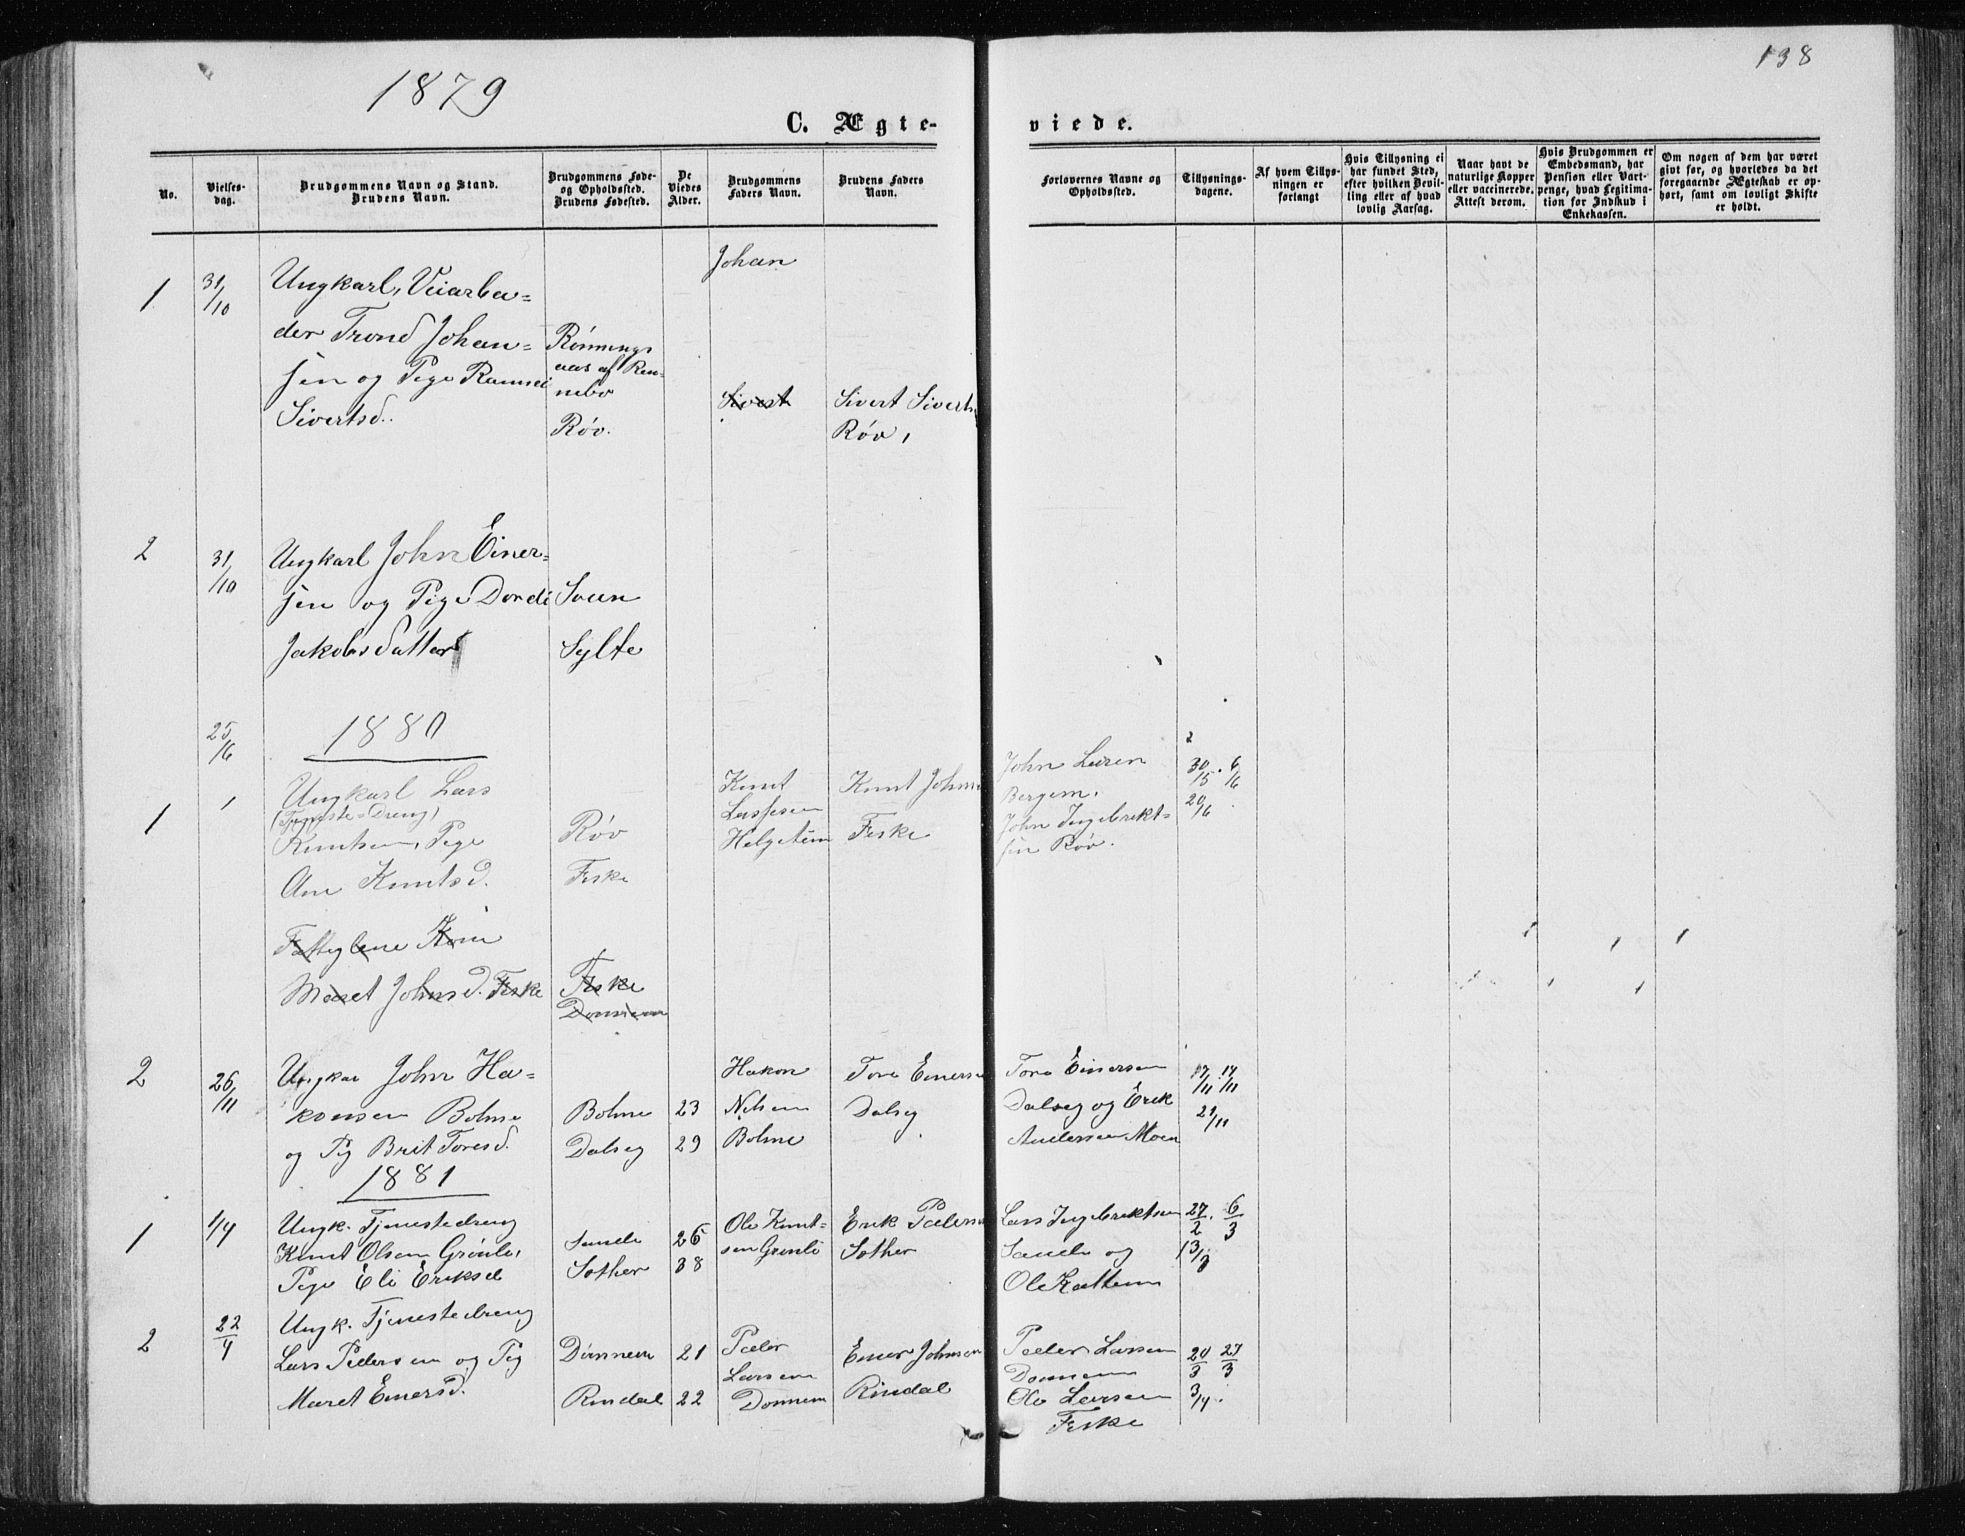 138
1879
C. Ægte-
viede.
No.
Vielses-
dag.
Brudgommens Navn og Stand.
Brudens Navn.
Brudgommens Føde-
og Opholdssted.
Brudens Fødested.
De
Viedes
Alder.
Brudgommens
Faders Navn.
Brudens Faders
Navn.
Forlovernes Navne og
Opholdssted.
Tillysnings-
dagene.
Af hvem Tillys-
ningen er
forlangt
Hvis Tillysning ei
har fundet Sted,
efter hvilken Bevil-
ling eller af hvad
lovlig Aarsag.
Naar havt de
naturlige Kopper
eller vaccinerede.
Attest derom.
Hvis Brudgommen er
Embedsmand, har
Pension eller Vart-
penge, hvad Legitima-
tion for Indskud i
Enkekassen.
Om nogen af dem har været
gift før, og hvorledes da det
foregaaende Ægteskab er op-
hørt, samt om lovligt Skifte
er holdt.
1
31/10
Ungkarl, Veiarbei=
der Trond Johan=
sen og Pige
Sivertsd.
Rønnings
aas af Ren-
nebo
Røv.
Johan
Sivert
Sivert Siverts
Røv,
2
31/10
Ungkarl John Einer=
sen og Pige Dordi
Jakobsdatter
Soen
Sylte
1880
1
25/6
Ungkarl Lars
(Tjeneste=Dreng)
Knutsen, Pige
Ane Knutsd.
Røv
Feske
Knut
Larssen
Helgetun
Knut Johns
Feske
John Larsen
Bergem.
John Ingebrikt=
sen Røv.
30/5 . 6/6
20/6
Maret Johnsd. Feske
Feske
Donnem
2
26/11
Ungkar John Ha=
konsen Bolme
og Pig Brit Toresd.
Bolme
Dalseg
23
29
Hakon
Nilsen
Bolme
Tore Einerse
Dalseg
Tore Einersen
Dalseg og Erik
Andersen Moen
14/11
21/11
1881
1
1/4
Ungk. Tjenestedreng
Knut Olsen Grønli,
Pige Eli Eriksd
Sande
Sother
26
38
Ole Knut=
sen Grønli
Erik Pedersen
Sother
Lars Ingebriktsen
Sande og
Ole Kattem
27/2 . 6/3
13/3
2
22/4
Ungk. Tjenestedreng
Lars Pedersen og Pig
Maret Einersd.
Dønnem
Rindal
21
22
Peder
Larsen
Donnem
Einer Johnsen
Rindal
Peder Larsen
Donnem
Ole Larsen
Feske
20/3 27/3
3/4.